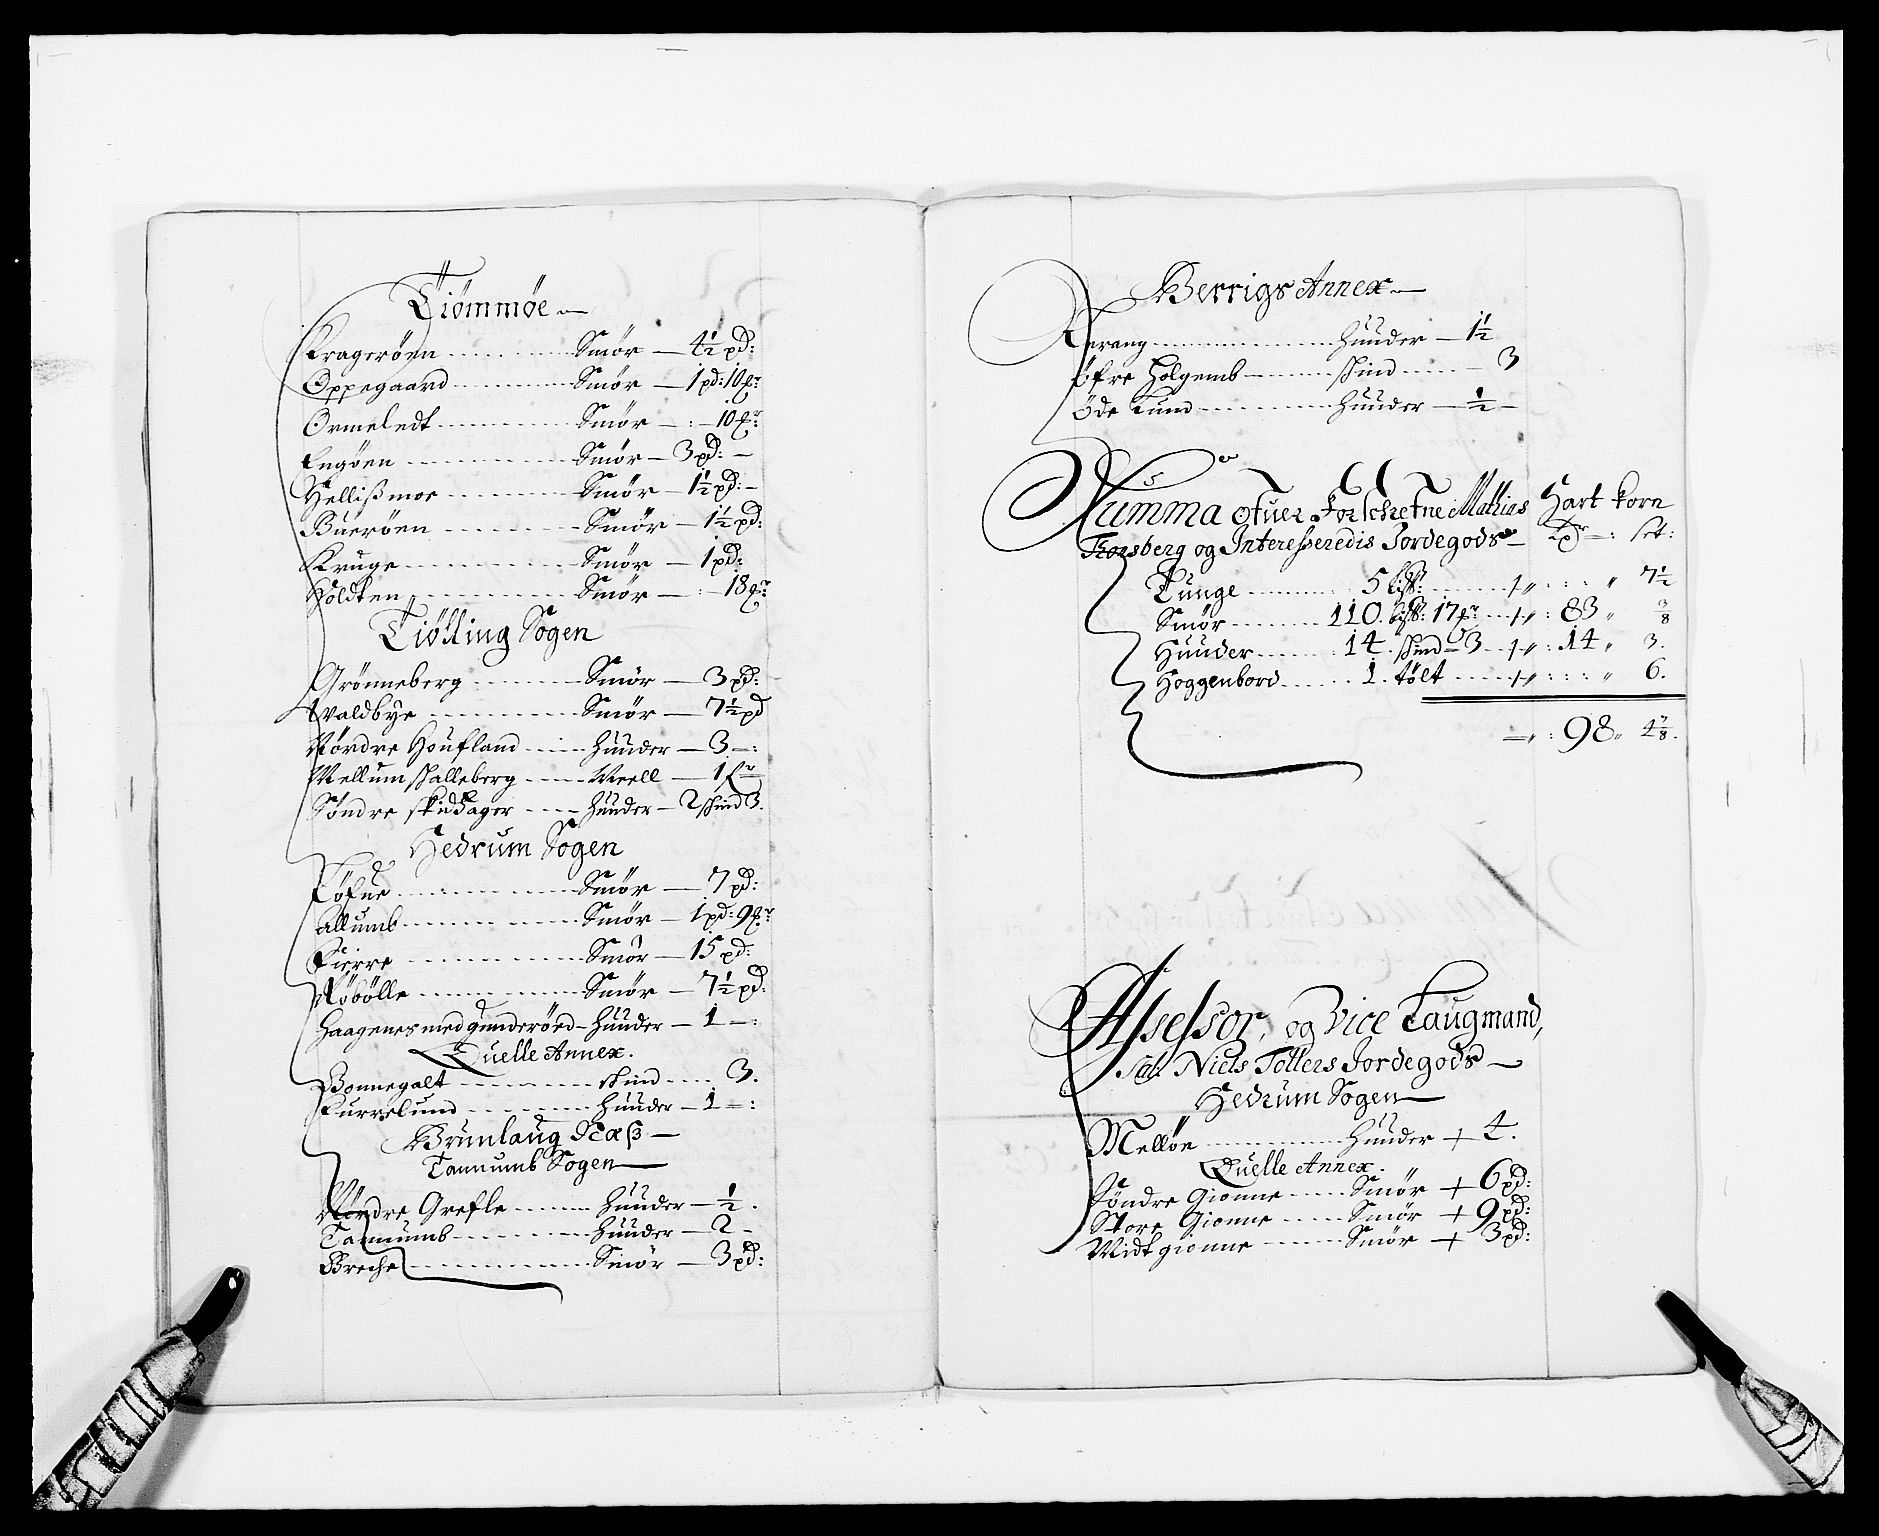 Tiømmøe
Kragerøen Smör 4½ pd:
Oppegaard Smör 1 pd: 10
Ormeledt Smör 10
Engøen Smör 3 pd:
Hellißmoe Smör 1½ pd:
Buerøen Smör 1½ pd:
Kruge Smör 1 pd:
Holdten Smör 18
Tiølling Sogen
Grönneberg Smör 3 pd:
Waldbye Smör 7½ pd
Nordre Houfland huuder 3
Mellum Halleberg Meell 1
Søndre huuder 2 skind 3.
Hedrum Sogen
Tøfne Smör 7 pd:
Allumb Smör 1 pd: 9
Fierre Smör 15 pd:
Röbölle Smör 7½ pd:
Haagenes med gunderöed huuder 1
Quelle Annex.
Bonnegalt skind 3.
Furrelund huuder 1
Brunlaug
Tannumb Sogen
Nordre Grefle huuder ½.
Tannumb huuder 2
Breche Smör 3 pd:
Berrigs Annex
huuder 1½
Øfre Holgemb skind 3
Øde Lund huuder ½
Summa ofuer Forschrefne Mathias Hart korn
Torsberg og Interesseredis Jordegods
Tunge 5 7½
Smör 110 17 83 3/8
Huuder 14 skind 3 14 3.
Hoggenbord 1 tølt 6.
98 4 7/8.
Assessor, og Vice Laugmand,
Sal: Niels Tollers Jordegods
Hedrum Sogen
Melløe Huuder + 4.
Quelle Annex.
Søndre Gionne Smör + 6 pd:
Store Gionne Smör + 9 pd:
Midtgionne Smör + 3 pd: